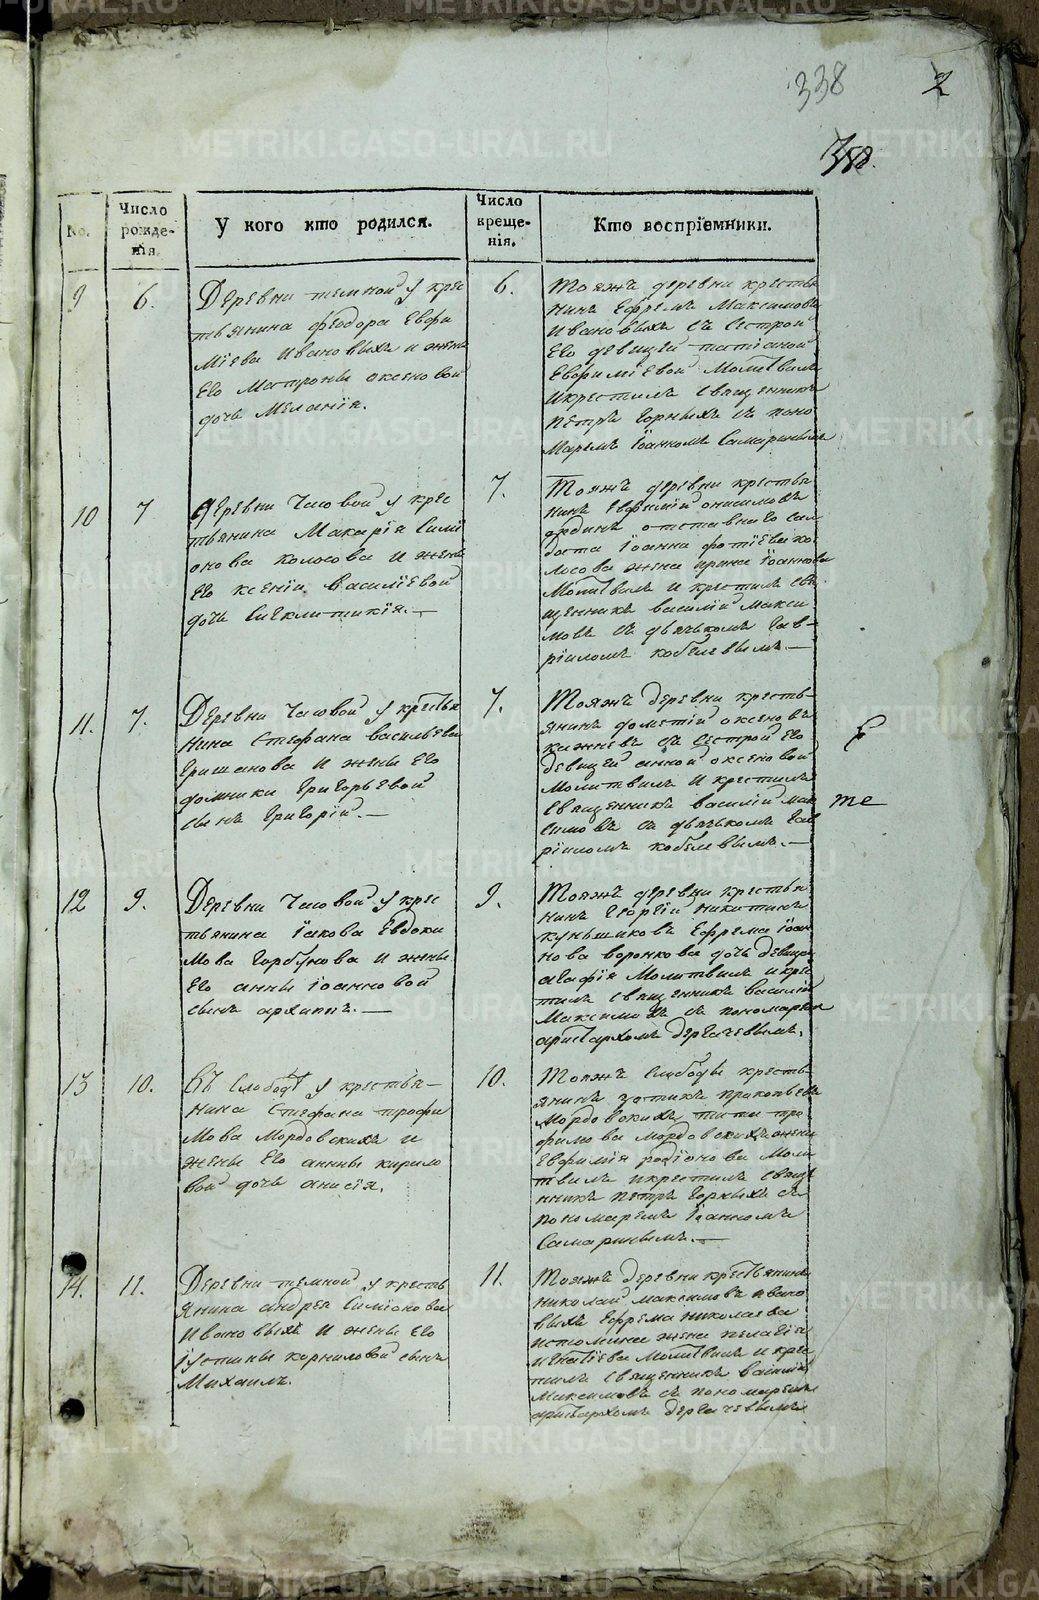 338
2
No.
Число рожде-нія.
У кого кто родился.
Число креще-нія.
Кто воспріемники.
9
6.
Деревни темной у крес
тьянина феодора Евфи
міева Ивановыхъ и жены
Его Матроны оксеновой
дочь Меланія.
6.
Тояжъ деревни крестья
нинъ Ефремъ Максимовъ
Ивановыхъ съ Сестрой
Его девицей татіаной
Евфиміевой Молитвилъ
икрестилъ Священникъ
петръ Горныхъ съ поно
маремъ Іоанномъ Самаринымъ
10
7
деревни Часовой у крес
тьянина Макарія Симі
онова колосова И жены
Его ксеніи василіевой
дочь Сигклитикія.—
7.
Тояжъ деревни крестья
нинъ Евфимій онисимовъ
отставнаго сол
дата Іоанна фотіева ко
лосова жена ирина Іоаннова
Молитвилъ и крестилъ свя
щенникъ василій Макси
мовъ съ дьячькомъ Гав-
ріиломъ кобелевымъ.—
11.
7.
Деревни Часовой у крестья
нина Стефана васильева
Гришанова И жены Его
домники Григорьевой
сынъ Григорій.—
7.
Тояжъ деревни кресть-
янинъ дометій оксеновъ
съ Сестрой Его
девицей анной оксеновой
Молитвилъ И крестилъ
Священникъ василій мак
симовъ съ дьячькомъ Гав
ріиломъ кобелевымъ.—
те
12
9.
Деревни Часовой у крес
тьянина Іакова Евдоки
мова Горбунова И жены
Его анны Іоанновой
сынъ архиппъ.—
9.
Тояжъ деревни крестья
нинъ Георгій Никитинъ
куньщиковъ Ефрема Іоан
нова воронкова дочь девица
агафія Молитвилъ икрес
тилъ священникъ василій
Максимовъ съ пономаремъ
аристархомъ дергачевымъ.
13
10.
Въ Слободѣ у крестья—
нина Стефана трофи
мова Мордовскихъ и
жены Его анны кирило
вой дочь анисія.
10.
Тояжъ Слободы кресть-
янинъ зотикъ прокопьевъ
Мордовскихъ тита тро
фимова Мордовскихъ жена
Евфимія родіонова Моли
твилъ икрестилъ свяще
нникъ петръ Горныхъ съ
пономаремъ Іоанномъ
Самаринымъ.—
14.
11.
Деревни темной у кресть
янина андрея Симіонова
Ивановыхъ И жены Его
іустины корниловой сынъ
Михаилъ.
11.
Тояжъ деревни крестьянинъ
Николай Максимовъ ивано
выхъ Ефрема Николаева
истомина жена пелагія
игнатіева Молитвилъ и крес
тилъ священникъ василій
Максимовъ съ пономаремъ
аристархомъ дергачевымъ
METRIKI.GASO-URAL.RU